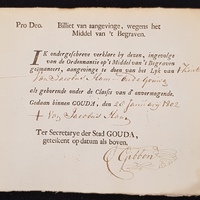 Pro Deo. Billiet van aangevinge, wegens het
Middel van 't Begraven.
IK ondergeschreve verklare by dezen, ingevolge
van de Ordonnantie op 't Middel van 't Begraven
geëmaneert, aangevinge te doen van het Lyk van
Van Jacobus
als gehorende onder de Classis van d' onvermogende.
Gedaan binnen GOUDA, den 20 January 1802
Van Jacobus
Ter Secretarye der Stad GOUDA,
getekent op datum als boven.